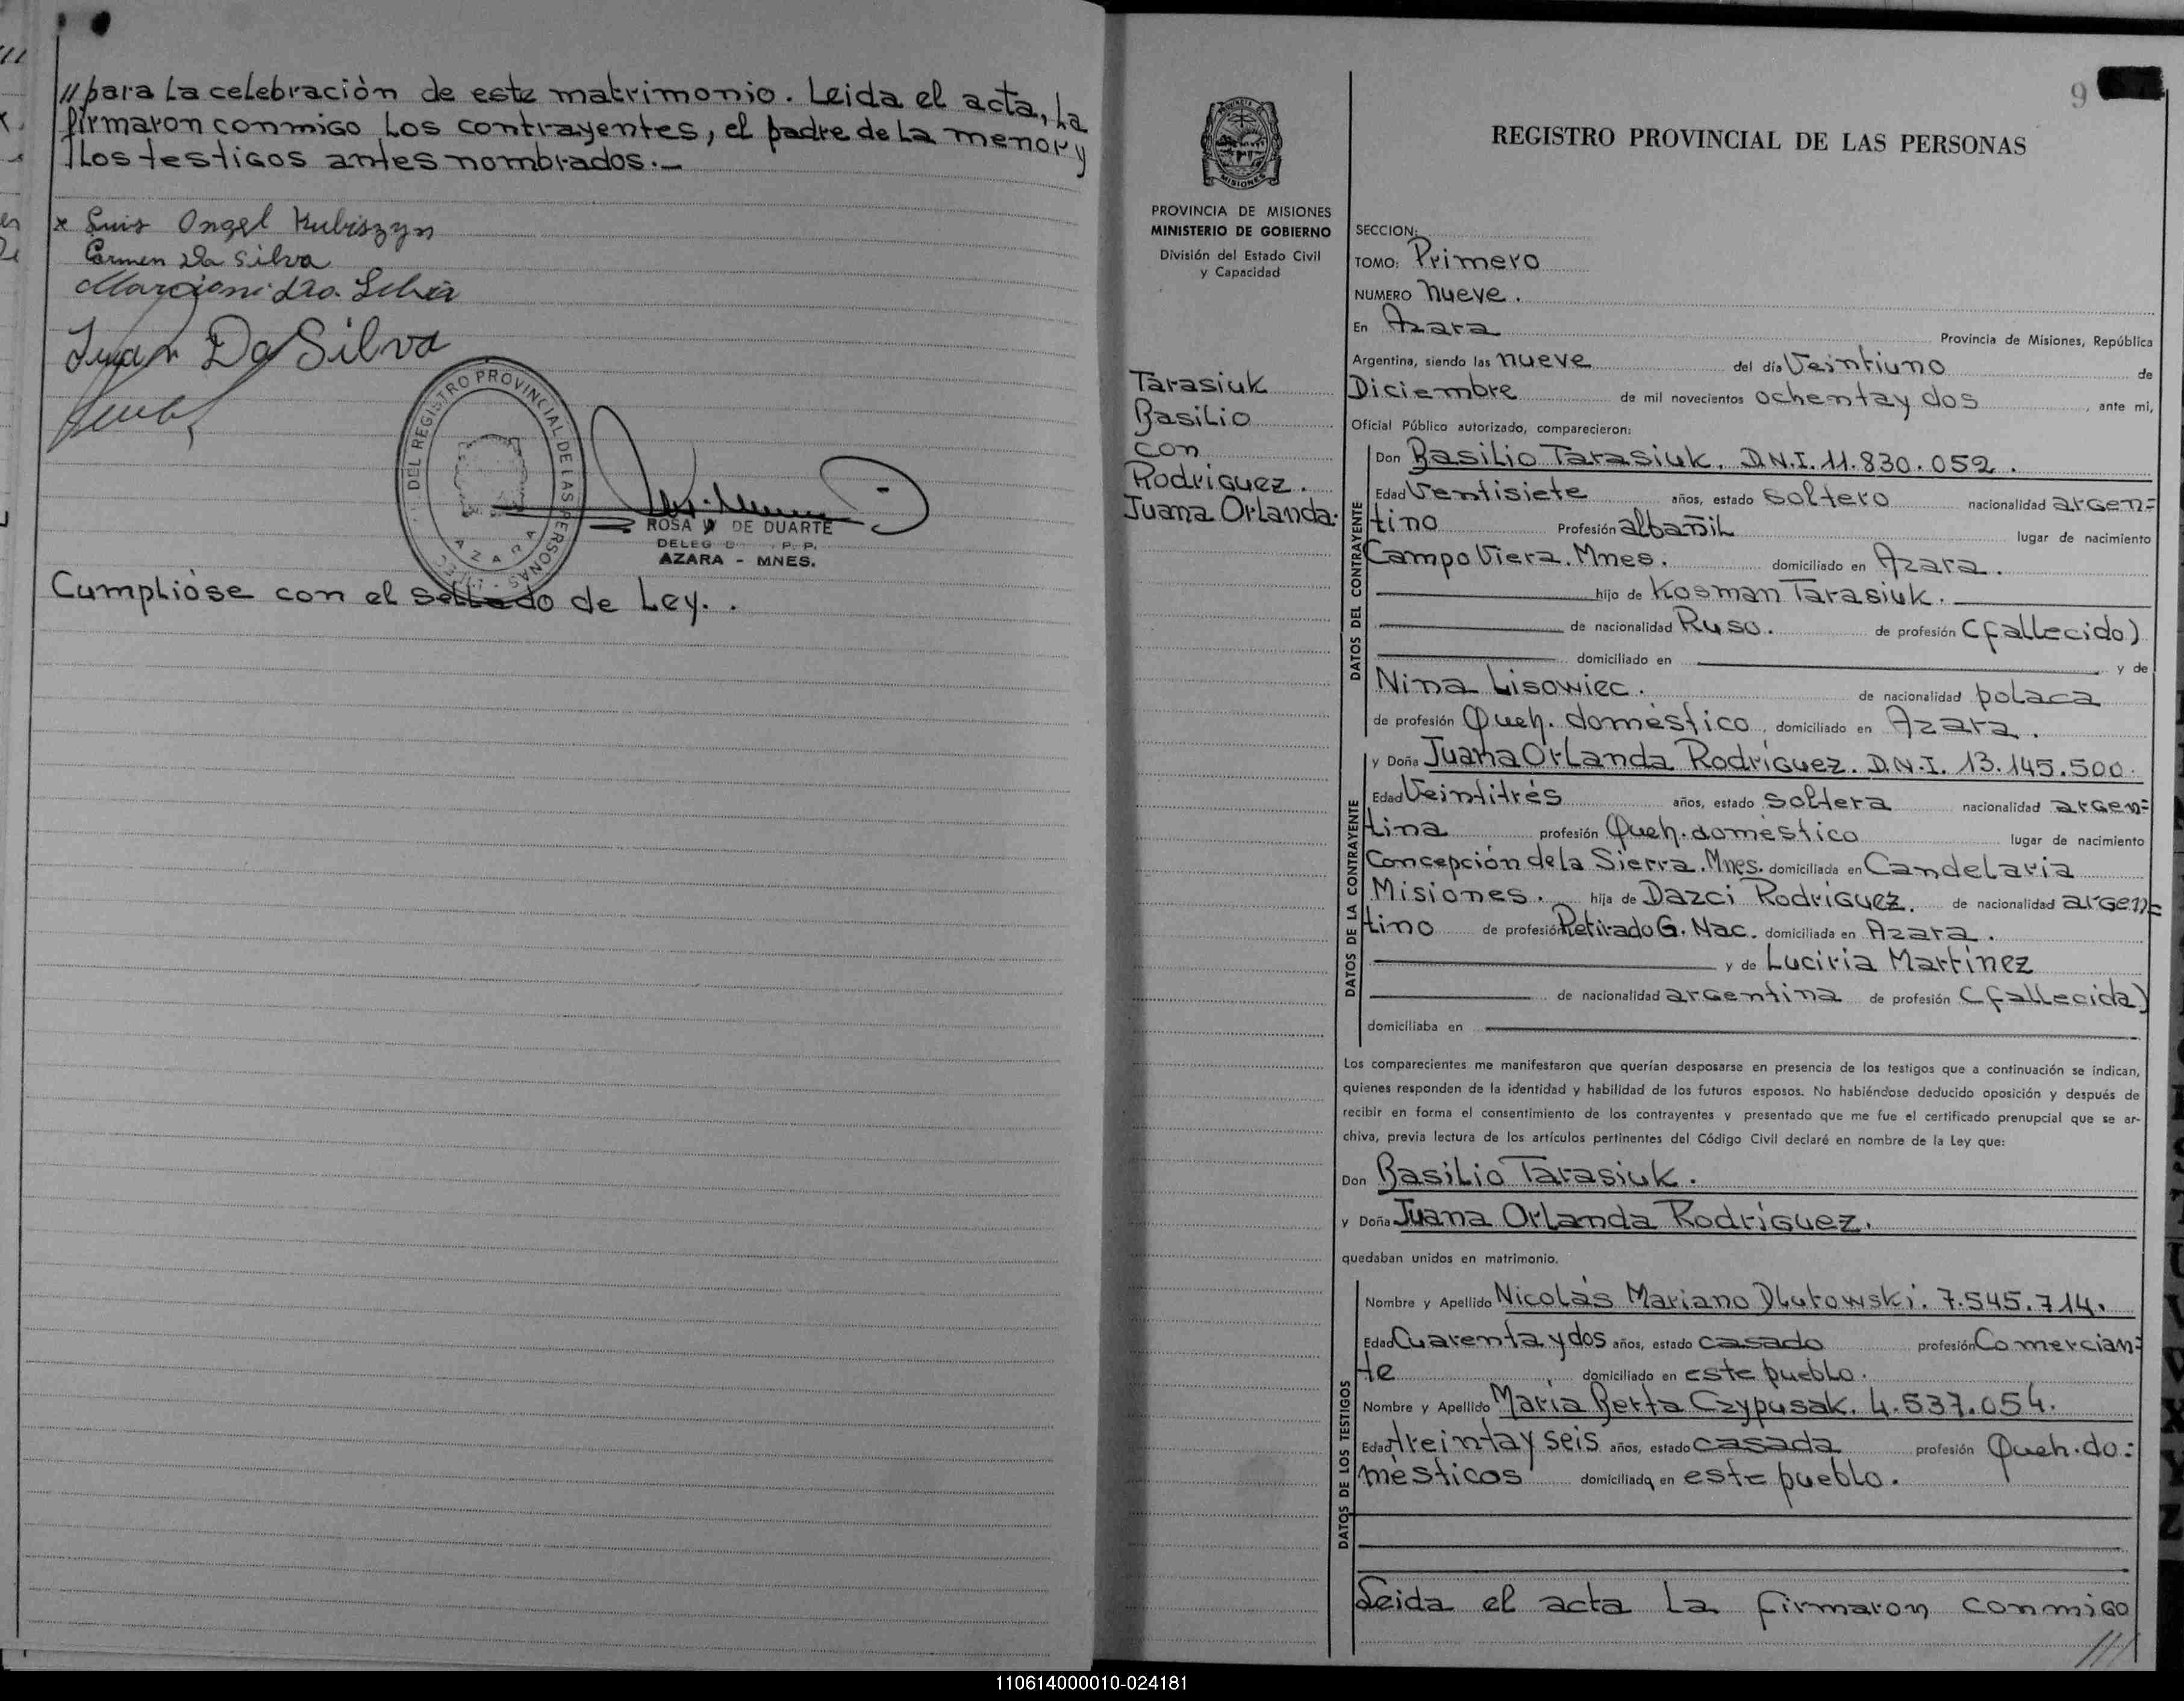 // para la celebración de este matrimonio. Leida el acta, la
firmaron conmigo los contrayentes, el padre de la menor y
los testigos antes nombrados.-
x Luis Angel Kubiszyn
Carmen Da Silva
Juan Da Silva
DEL REGISTRO PROVINCIAL DE LAS PERSONAS
AZARA
ROSA DE DUARTE
AZARA - MNES.
Cumplióse con el sellado de Ley. .
9
PROVINCIA DE MISIONES
PROVINCIA DE MISIONES
MINISTERIO DE GOBIERNO
División del Estado Civil
y Capacidad
Tarasiuk
Basilio
con
Rodriguez.
Juana Orlanda.
REGISTRO PROVINCIAL DE LAS PERSONAS
SECCION:
TOMO: Primero
NUMERO nueve.
En Azara Provincia de Misiones, República
Argentina, siendo las nueve del día Veintiuno de
Diciembre de mil novecientos ochenta y dos, ante mi,
Oficial Público autorizado, comparecieron:
DATOS DEL CONTRAYENTE
Don Basilio Tarasiuk. D.N.I. 11.830.052.
Edad Ventisiete años, estado soltero nacionalidad argen=
tino Profesión albañil lugar de nacimiento
Campo Viera. Mnes. domiciliado en Azara.
hijo de Kosman Tarasiuk.
de nacionalidad Ruso. de profesión (fallecido)
domiciliado en y de
Nina Lisowiec. de nacionalidad polaca
de profesión Queh. doméstico, domiciliado en Azara.
DATOS DE LA CONTRAYENTE
y Doña Juana Orlanda Rodríguez. D.N.I. 13.145.500.
Edad Veintitrés años, estado soltera nacionalidad argen=
tina profesión Queh. doméstico lugar de nacimiento
Concepción de la Sierra. Mnes. domiciliada en Candelaria
Misiones. hija de Dazci Rodríguez. de nacionalidad argen=
tino de profesión Retirado G. Nac. domiciliada en Azara.
y de Luciria Martínez
de nacionalidad argentina de profesión (fallecida)
domiciliaba en
Los comparecientes me manifestaron que querían desposarse en presencia de los testigos que a continuación se indican,
quienes responden de la identidad y habilidad de los futuros esposos. No habiéndose deducido oposición y después de
recibir en forma el consentimiento de los contrayentes y presentado que me fue el certificado prenupcial que se ar-
chiva, previa lectura de los artículos pertinentes del Código Civil declaré en nombre de la Ley que:
Don Basilio Tarasiuk.
y Doña Juana Orlanda Rodríguez.
quedaban unidos en matrimonio.
DATOS DE LOS TESTIGOS
Nombre y Apellido Nicolás Mariano Dlutowski. 7.545.714.
Edad Cuarenta y dos años, estado casado profesión Comercian=
te domiciliado en este pueblo.
Nombre y Apellido María Berta Czypusak. 4.537.054.
Edad treinta y seis años, estado casada profesión Queh. do=
mésticos domiciliada en este pueblo.
Leida el acta la firmaron conmigo
///
110614000010-024181